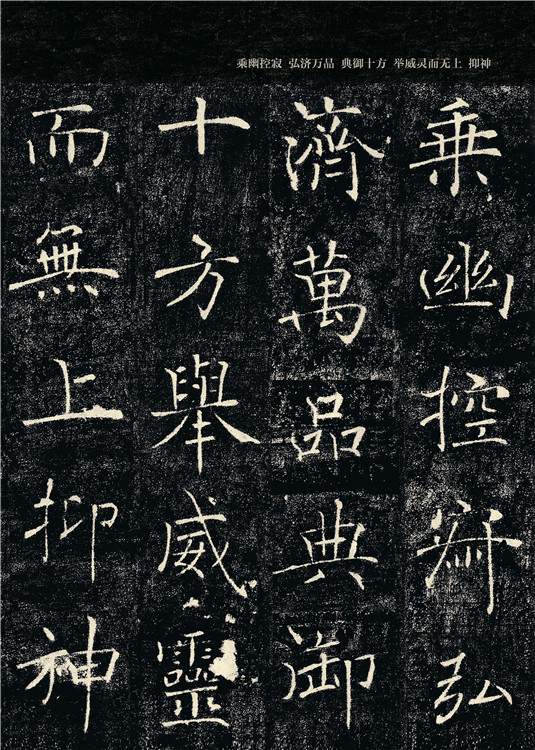 乘幽控寂 弘济万品 典御十方 举威灵而无上 抑神
乘幽控寂弘
濟萬品典御
十方舉威靈
而無上抑神